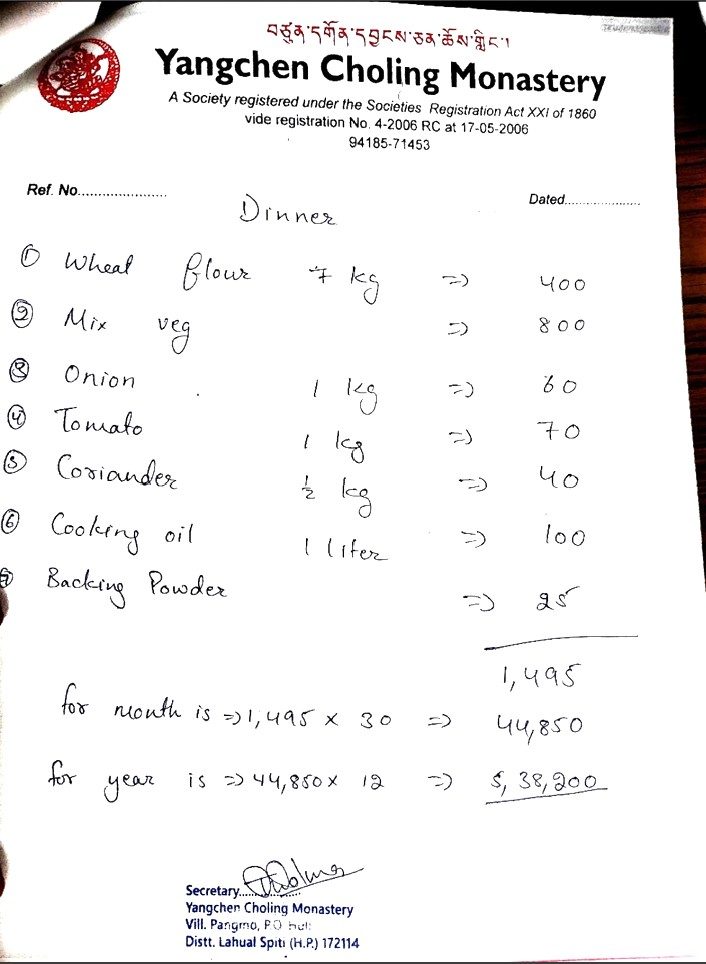 བཙུན་དགོན་དབྱངས་ཅན་ཆོས་གླིང་།
Yangchen Choling Monastery
A Society registered under the Societies Registration Act XXI of 1860
vide registration No. 4-2006 RC at 17-05-2006
94185-71453
Ref. No...................... Dated....................
Dinner
① Wheat flour 7 kg => 400
② Mix veg => 800
③ Onion 1 kg => 60
④ Tomato 1 kg => 70
⑤ Coriander ½ kg => 40
⑥ Cooking oil 1 liter => 100
⑦ Backing Powder => 25
1,495
for month is => 1,495 x 30 => 44,850
for year is => 44,850 x 12 => 5,38,200
Secretary
Yangchen Choling Monastery
Vill. Pangmo, P.O
Distt. Lahual Spiti (H.P.) 172114